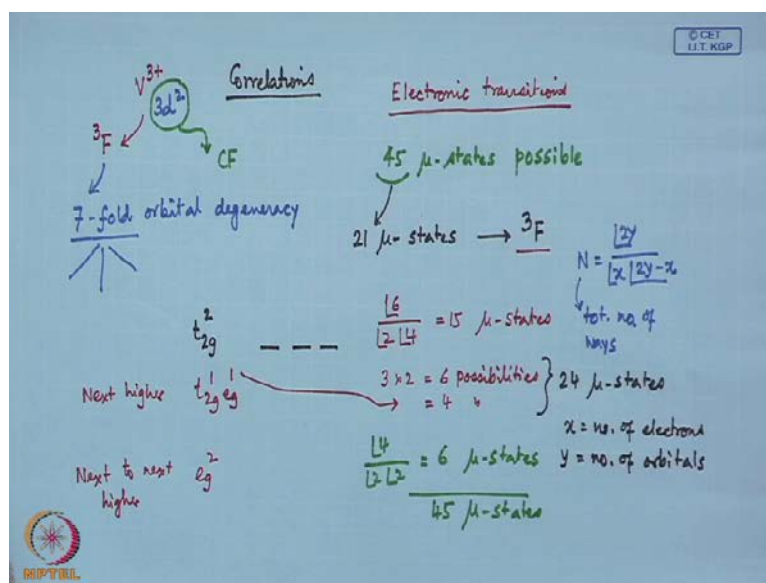 © CET
I.I.T. KGP
Correlations
Electronic transitions
V³⁺
3d²
³F
CF
7-fold orbital degeneracy
45 μ-states possible
21 μ-states → ³F
N = |2y / |x |2y-x
tot. no. of
ways
t₂g² — — —
|6 / |2 |4 = 15 μ-states
Next higher t₂g¹ eg¹
3 x 2 = 6 possibilities } 24 μ-states
= 4 "
x = no. of electrons
y = no. of orbitals
Next to next
higher
eg²
|4 / |2 |2 = 6 μ-states
45 μ-states
NPTEL